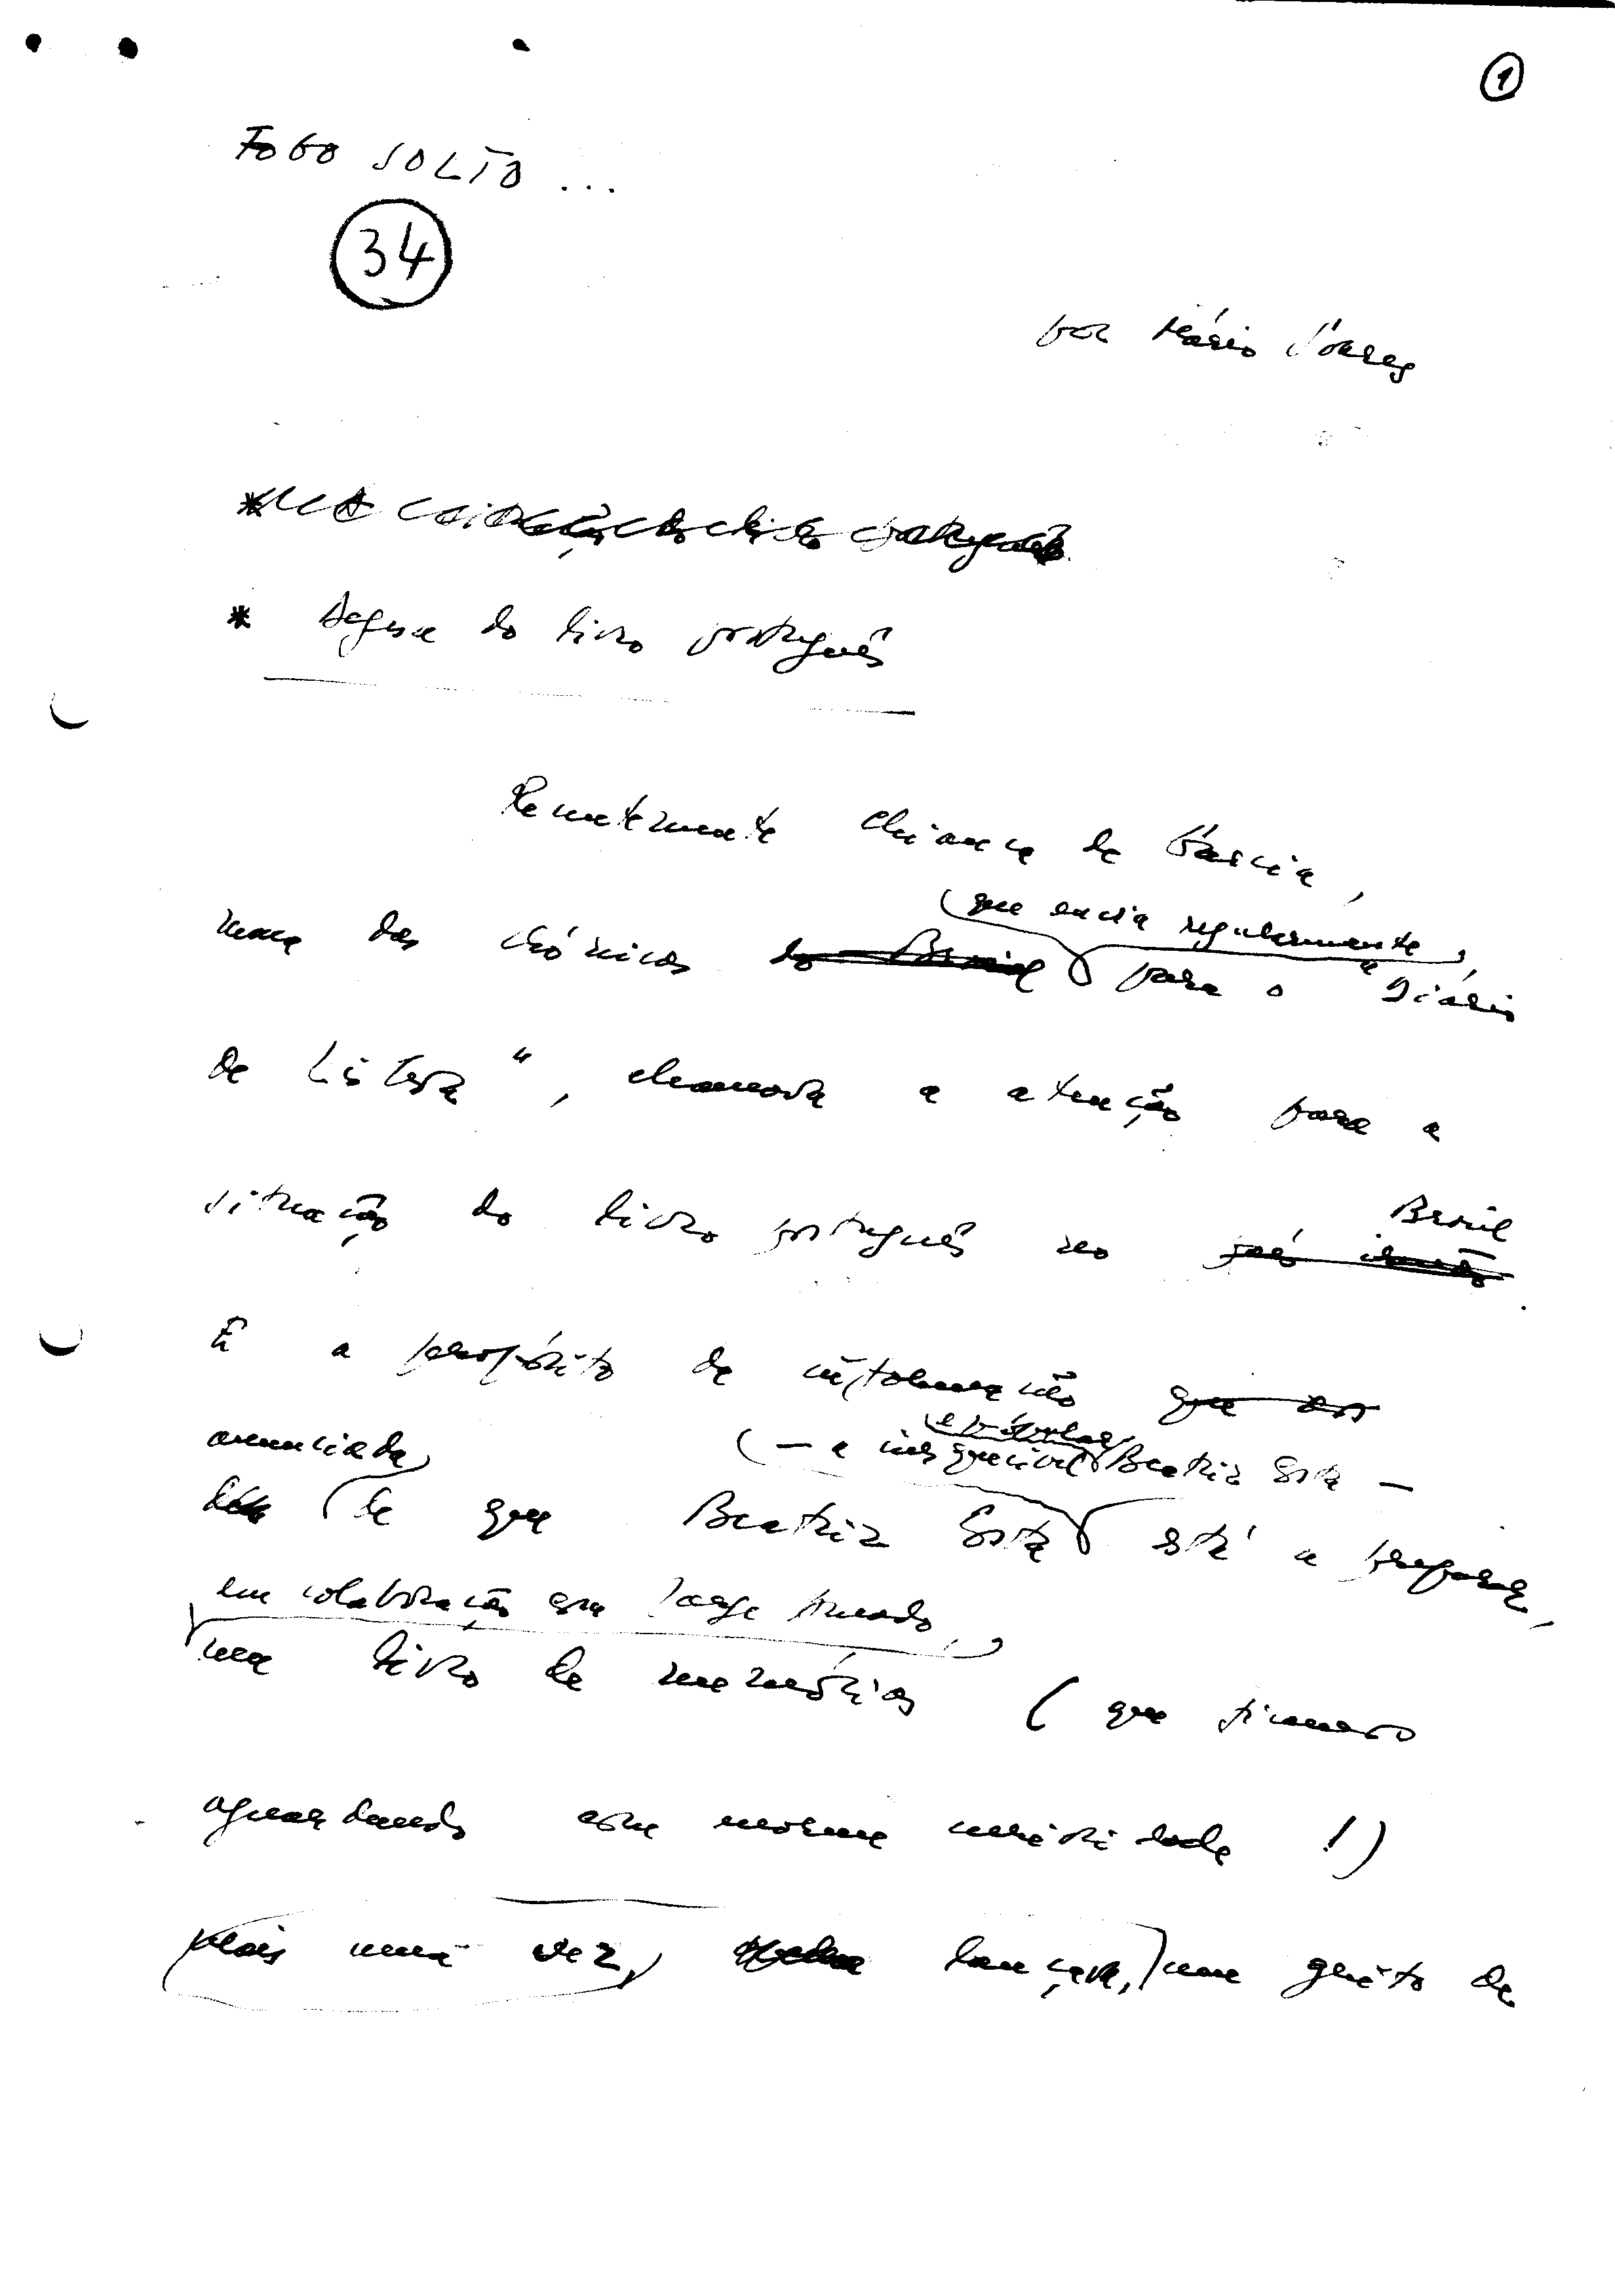 1
FOGO SOLTO ...
34
por Mário Soares
* A
* Defesa do livro português
Recentemente Chianca de Garcia,
que envia regularmente,
numa das crónicas do Brasil para o "Diário
de Lisboa", chamava a atenção para a
Brasil
situação do livro português no país irmão.
E a propósito da informação que nos
e popular
anunciada (— a inesquecível Beatriz Costa —
de que Beatriz Costa está a preparar,
em colaboração com Jorge Amado,
um livro de memórias (que ficamos
aguardando com enorme curiosidade!)
mais uma vez, lançava, um grito de